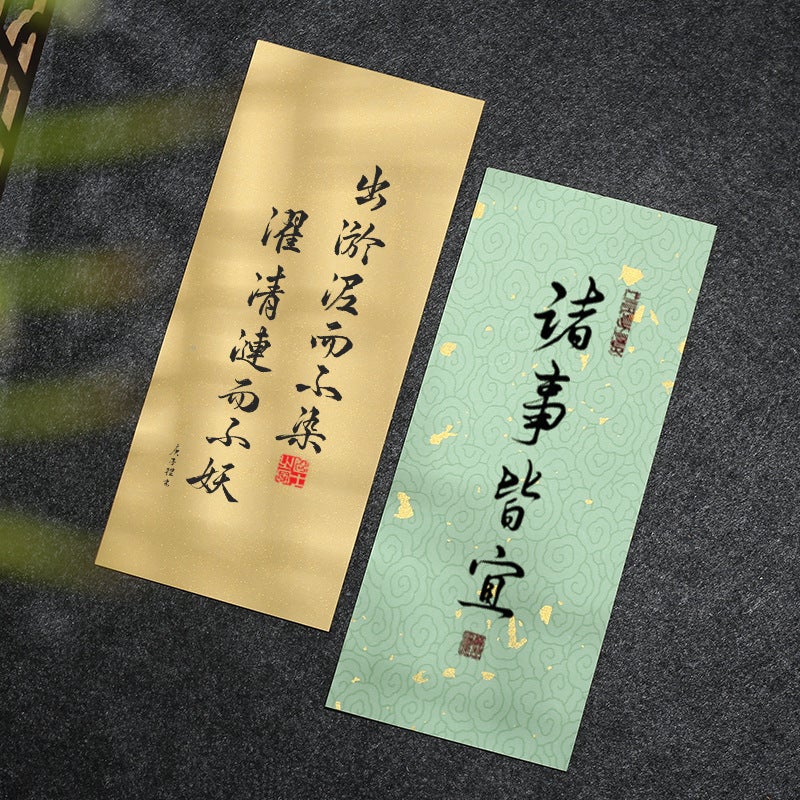 出淤泥而不染
濯清涟而不妖
诸事皆宜